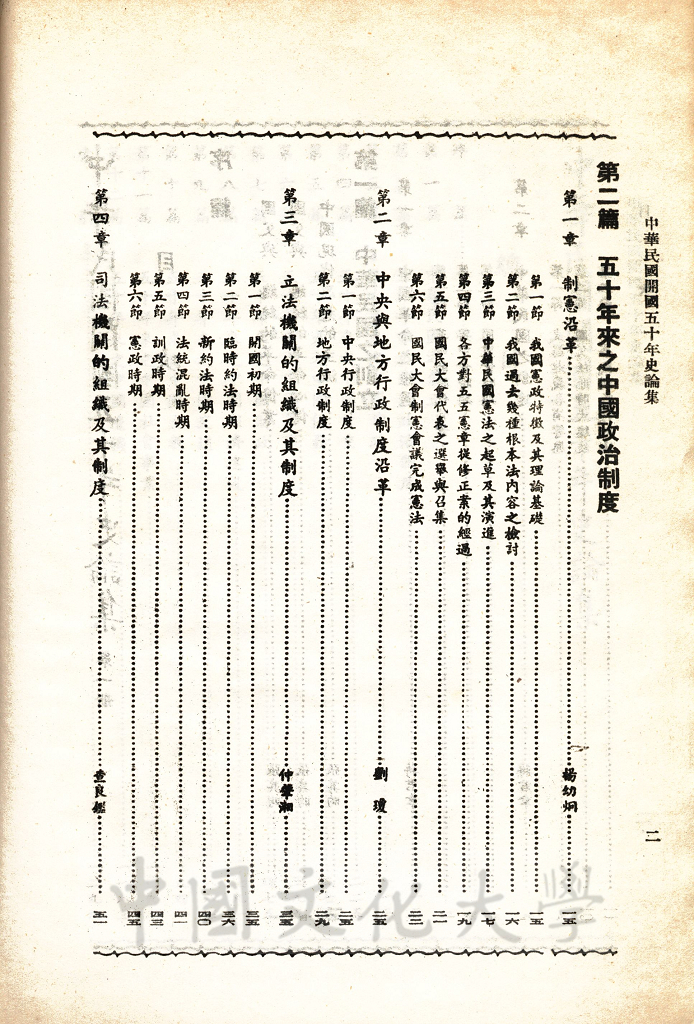 中華民國開國五十年史論集
二
第二篇 五十年來之中國政治制度
第一章 制憲沿革 楊幼炯 一五
第一節 我國憲政特徵及其理論基礎 一五
第二節 我國過去幾種根本法內容之檢討 一六
第三節 中華民國憲法之起草及其演進 一七
第四節 各方對五五憲章提修正案的經過 一九
第五節 國民大會代表之選舉與召集 二一
第六節 國民大會制憲會議完成憲法 二二
第二章 中央與地方行政制度沿革 劉瓊 二五
第一節 中央行政制度 二五
第二節 地方行政制度 二九
第三章 立法機關的組織及其制度 仲肇湘 三五
第一節 開國初期 三五
第二節 臨時約法時期 三六
第三節 新約法時期 四〇
第四節 法統混亂時期 四一
第五節 訓政時期 四三
第六節 憲政時期 四五
第四章 司法機關的組織及其制度 查良鑑 五一
中國文化大學